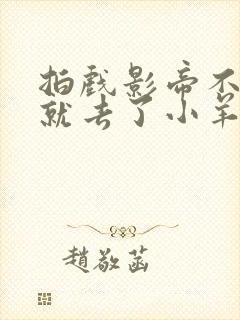 拍戏影帝不
就去了小羊
趙敬菡